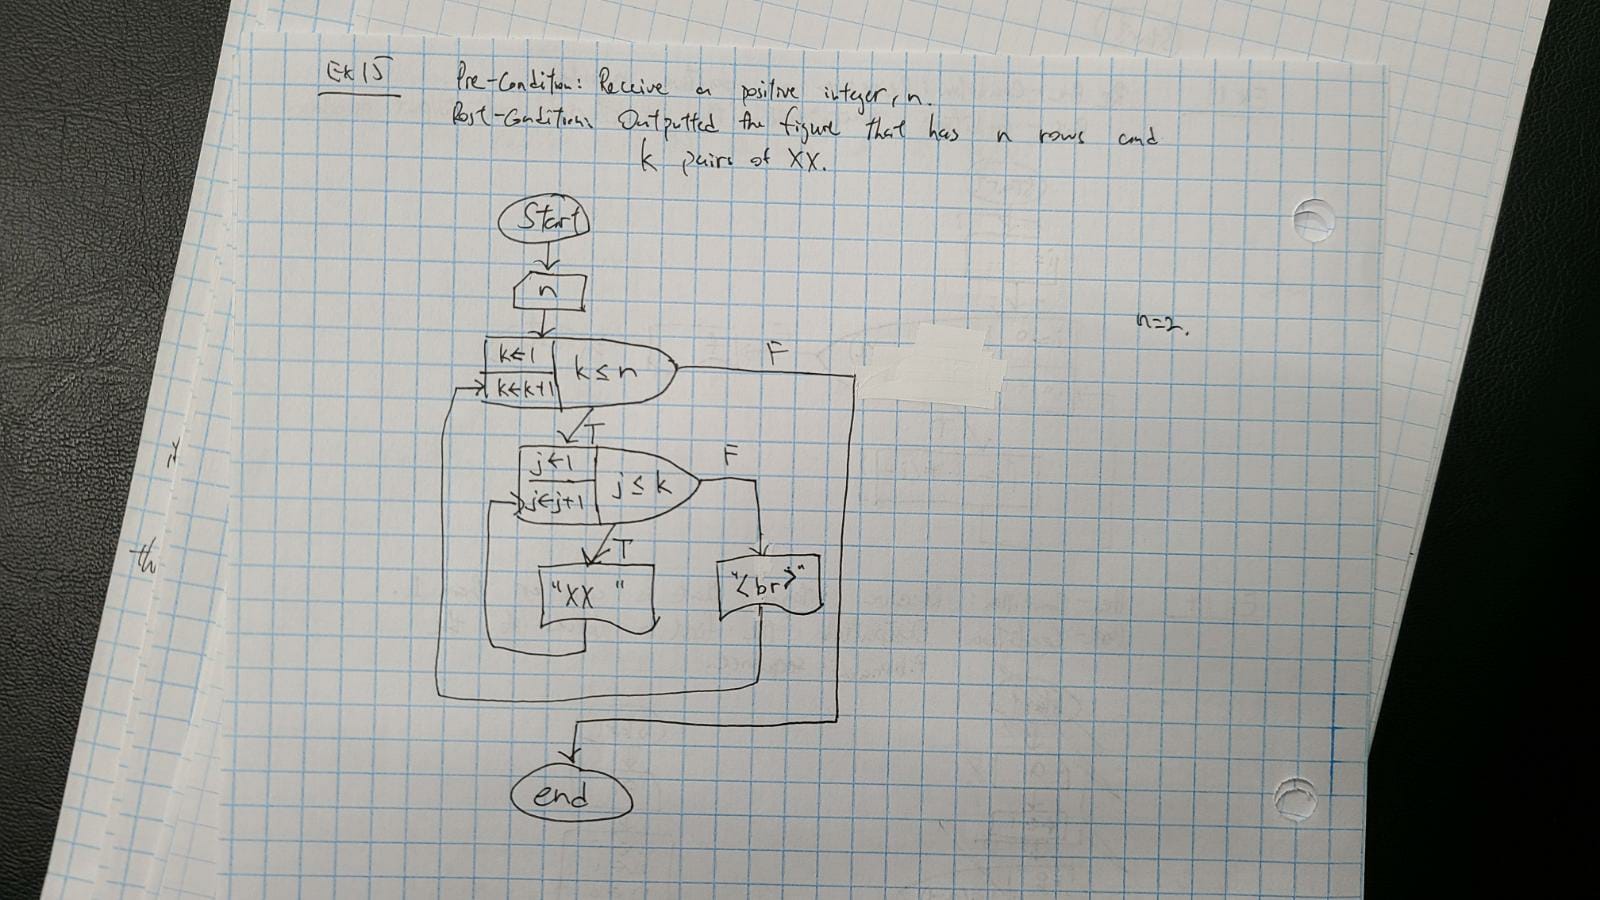 Ex 15
Pre-Condition: Receive a positive integer, n.
Post-Condition: Outputted the figure that has n rows and
k pairs of XX.
Start
n
n=2.
k←1
k←k+1
k ≤ n
F
T
j←1
j←j+1
j ≤ k
F
T
"XX "
"<br>"
end
th